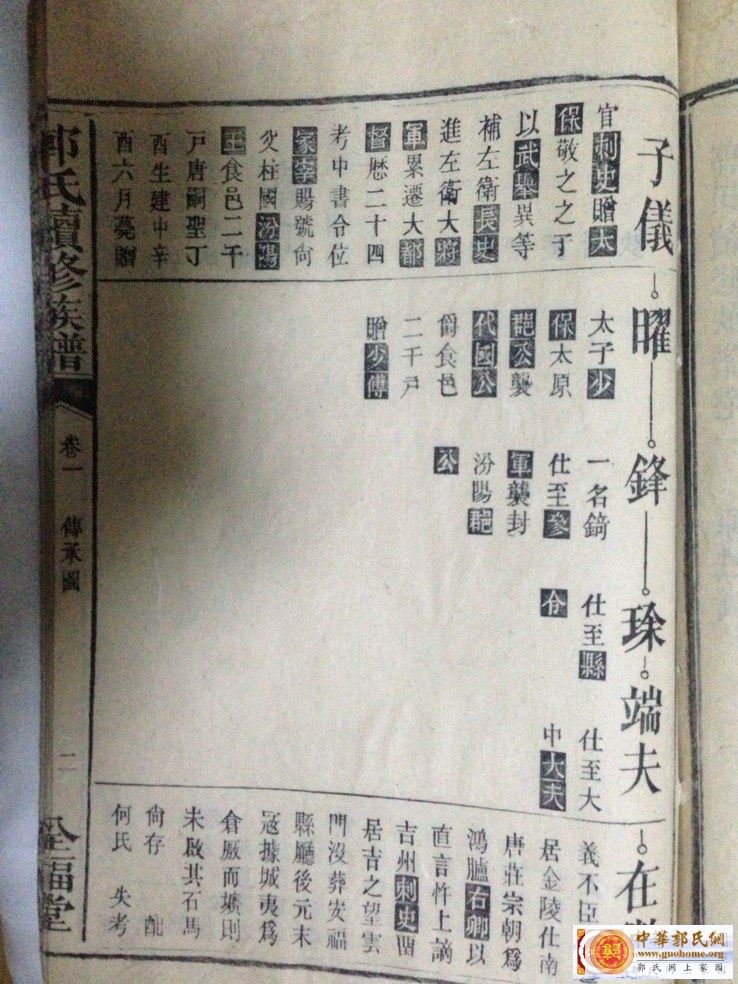 子儀
官刺史贈太
保敬之之子
以武舉異等
補左衛長史
進左衛大將
軍累遷大都
督歷二十四
考中書令位
冢宰賜號尙
父柱國汾陽
王食邑二千
戶唐嗣聖丁
酉生建中辛
酉六月薨贈
曜
太子少
保太原
郡公襲
代國公
爵食邑
二千戶
贈少傅
鋒
一名錡
仕至參
軍襲封
汾陽郡
公
琛
仕至縣
令
端夫
仕至大
中大夫
在
義不臣
居金陵仕南
唐莊宗朝爲
鴻臚右卿以
直言忤上謫
吉州刺史畱
居吉之望雲
門沒葬安福
縣廳後元末
冦據城夷爲
倉厫而壙則
未啟其石馬
尙存 配
何氏 失考
郭氏續修族譜
卷一 傳承圖
二
全福堂
中華郭氏網
www.guohome.org
郭氏網上家園